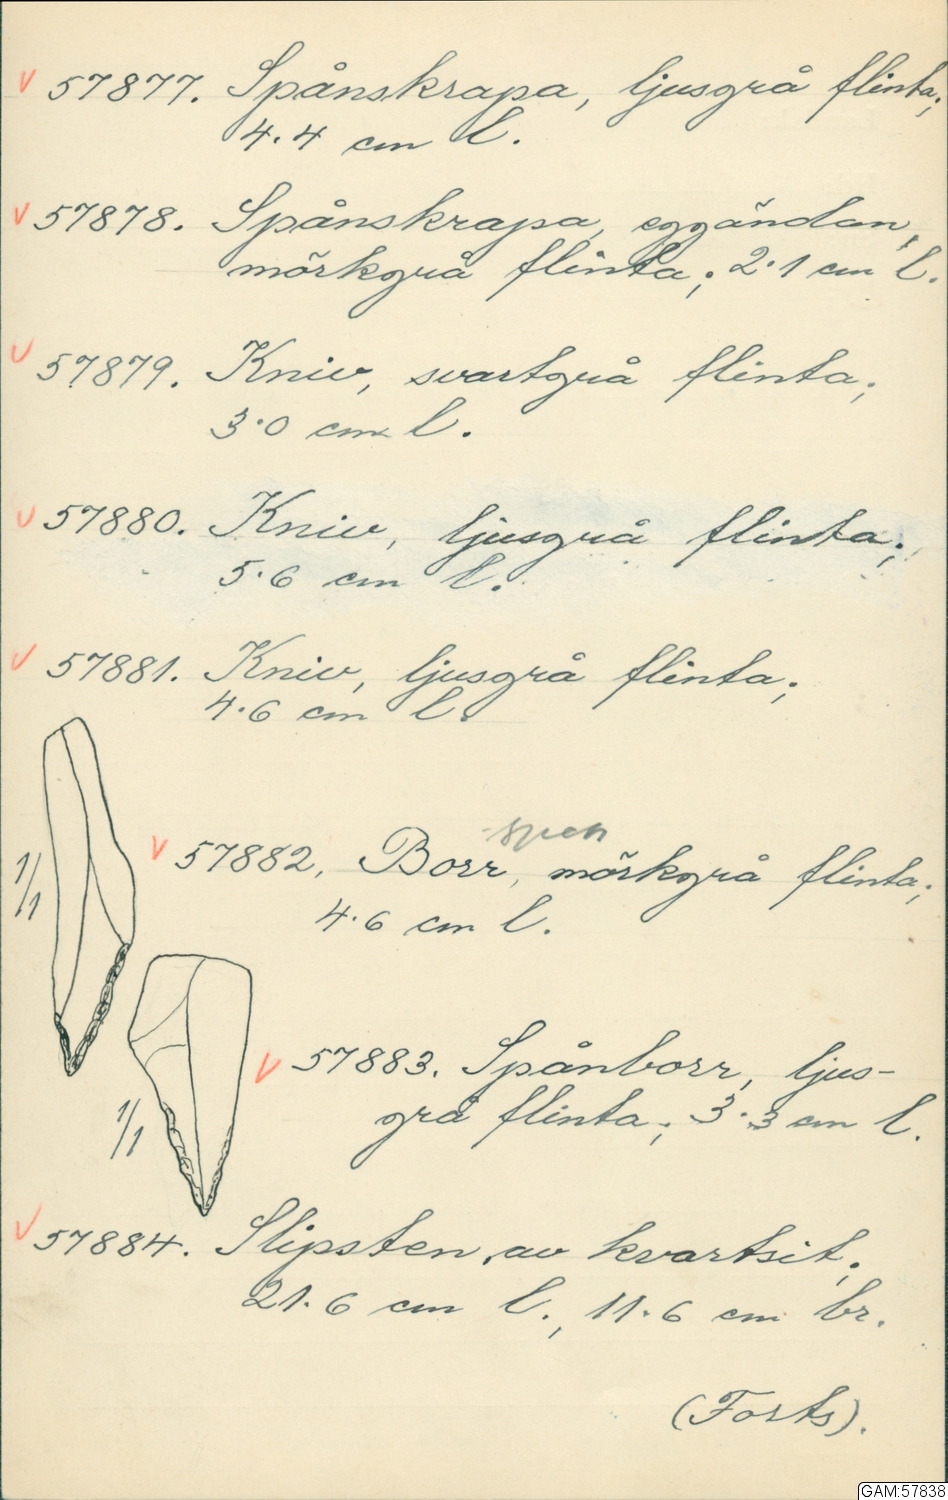 v 57877. Spånskrapa, ljusgrå flinta;
4.4 cm l.
v 57878. Spånskrapa, eggändan,
mörkgrå flinta; 2.1 cm l.
v 57879. Kniv, svartgrå flinta;
3.0 cm l.
v 57880. Kniv, ljusgrå flinta;
5.6 cm l.
v 57881. Kniv, ljusgrå flinta;
4.6 cm l.
v 57882. Borr, mörkgrå flinta;
4.6 cm l.
1/1
v 57883. Spånborr, ljus-
grå flinta; 3.3 cm l.
1/1
v 57884. Slipsten av kvartsit;
21.6 cm l., 11.6 cm br.
(Forts).
GAM:57838